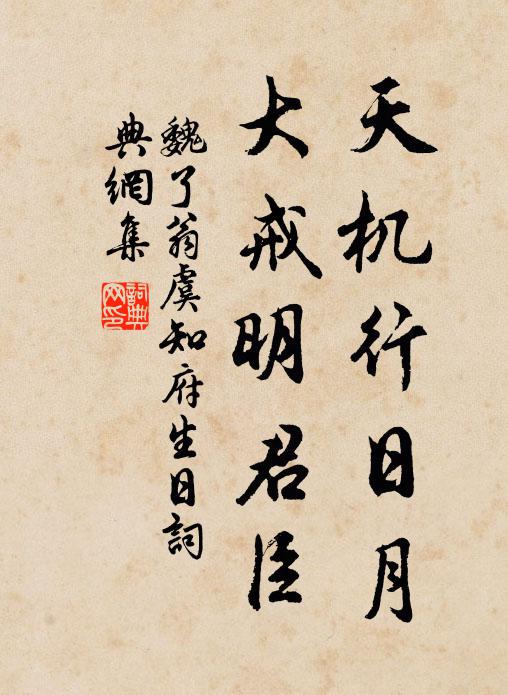 天机行日月
大戒明君臣
魏了翁虞知府生日詞
典網集
詞典
网印